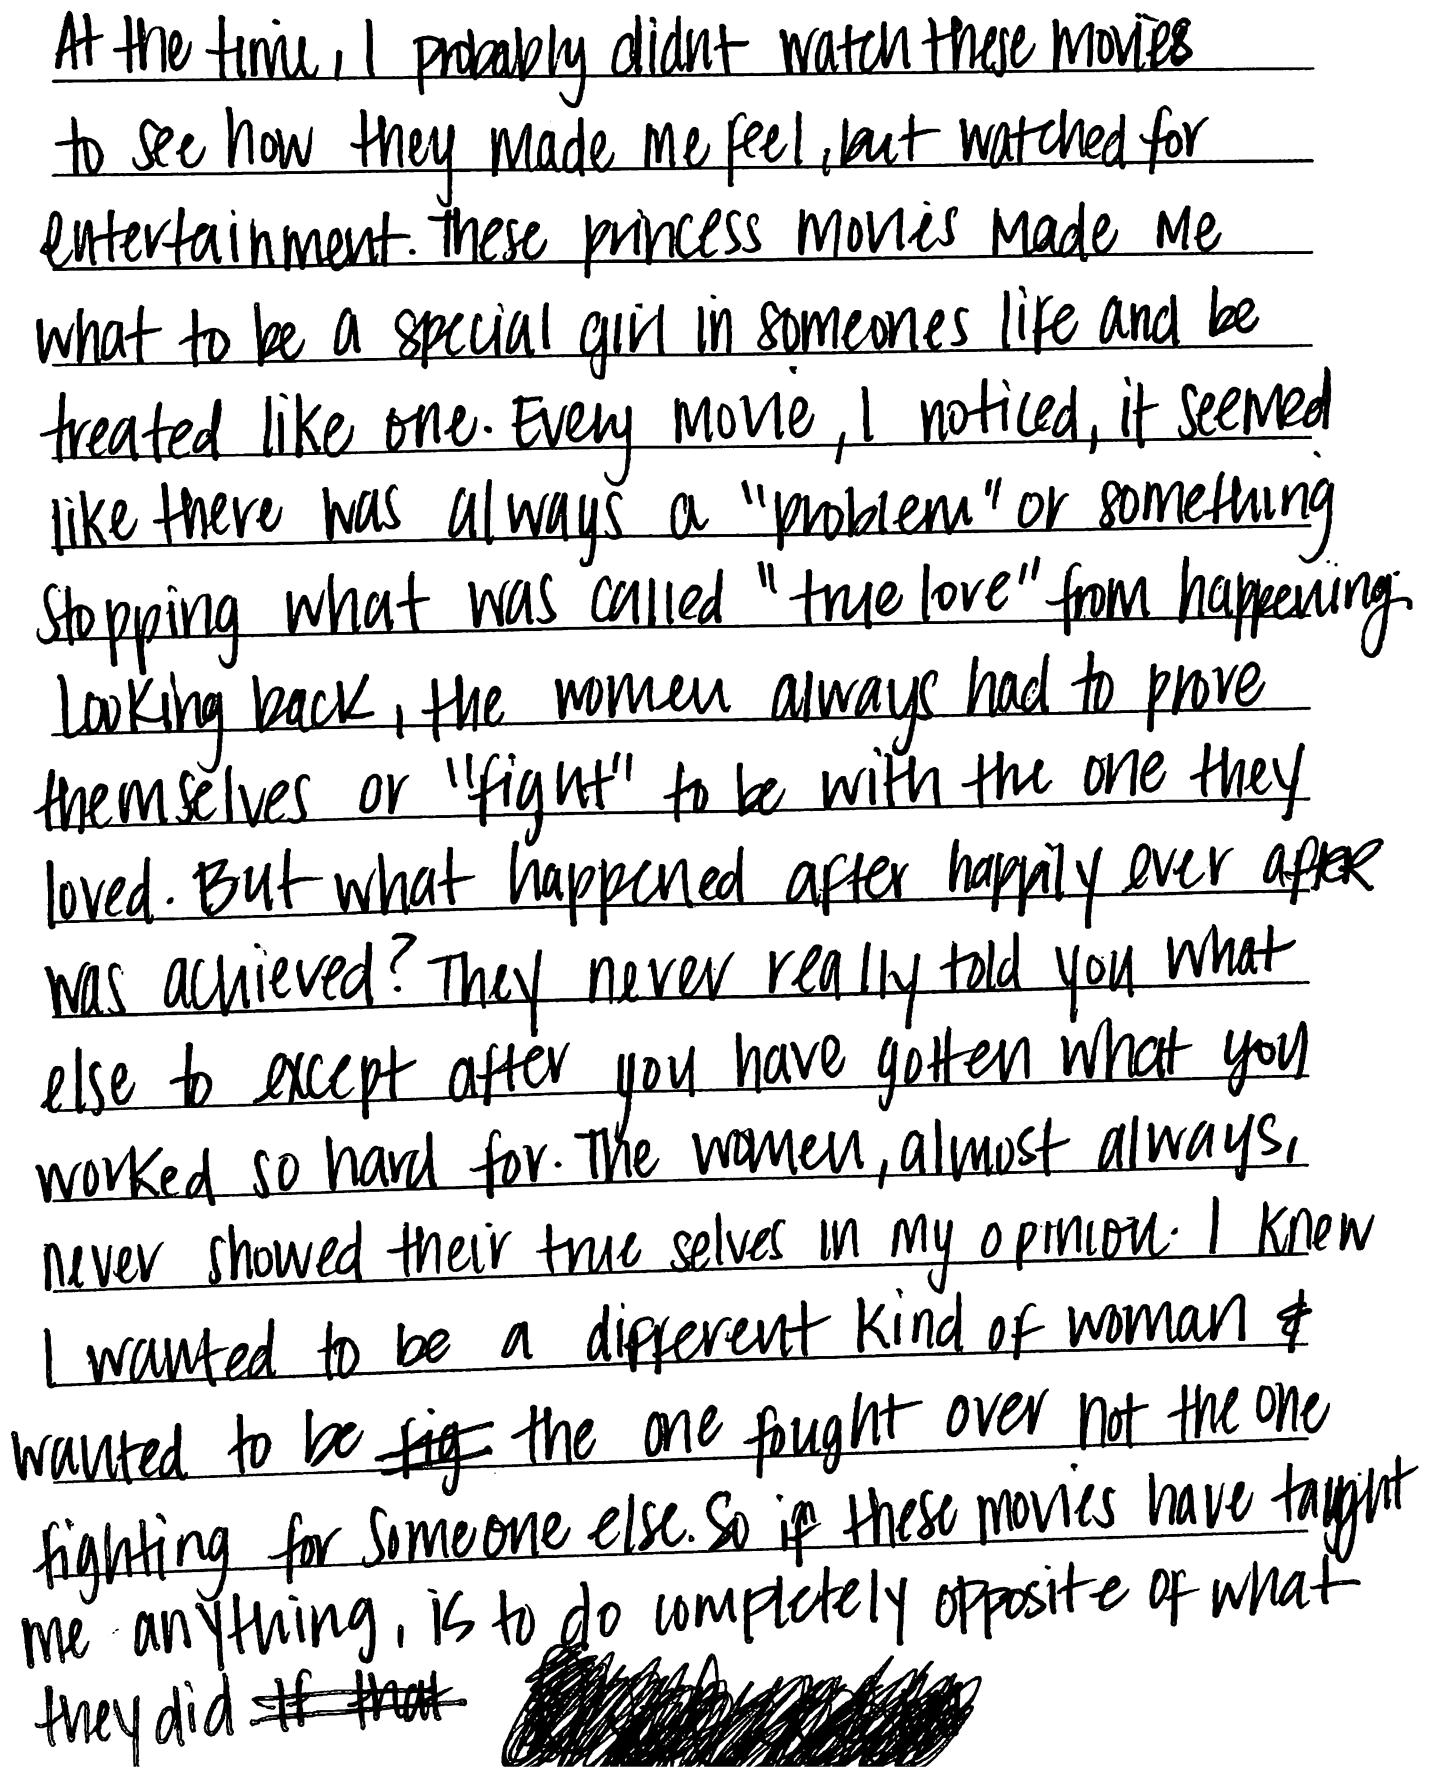 At the time, I probably didnt watch these movies
to see how they made me feel, but watched for
entertainment. These princess movies made me
what to be a special girl in someones life and be
treated like one. Every movie, I noticed, it seemed
like there was always a "problem" or something
stopping what was called "true love" from happening.
Looking back, the women always had to prove
themselves or "fight" to be with the one they
loved. But what happened after happily ever after
was achieved? They never really told you what
else to except after you have gotten what you
worked so hard for. The women, almost always,
never showed their true selves in my opinion. I knew
I wanted to be a different kind of woman &
wanted to be fig the one fought over not the one
fighting for someone else. So if these movies have taught
me anything, is to do completely opposite of what
they did If that